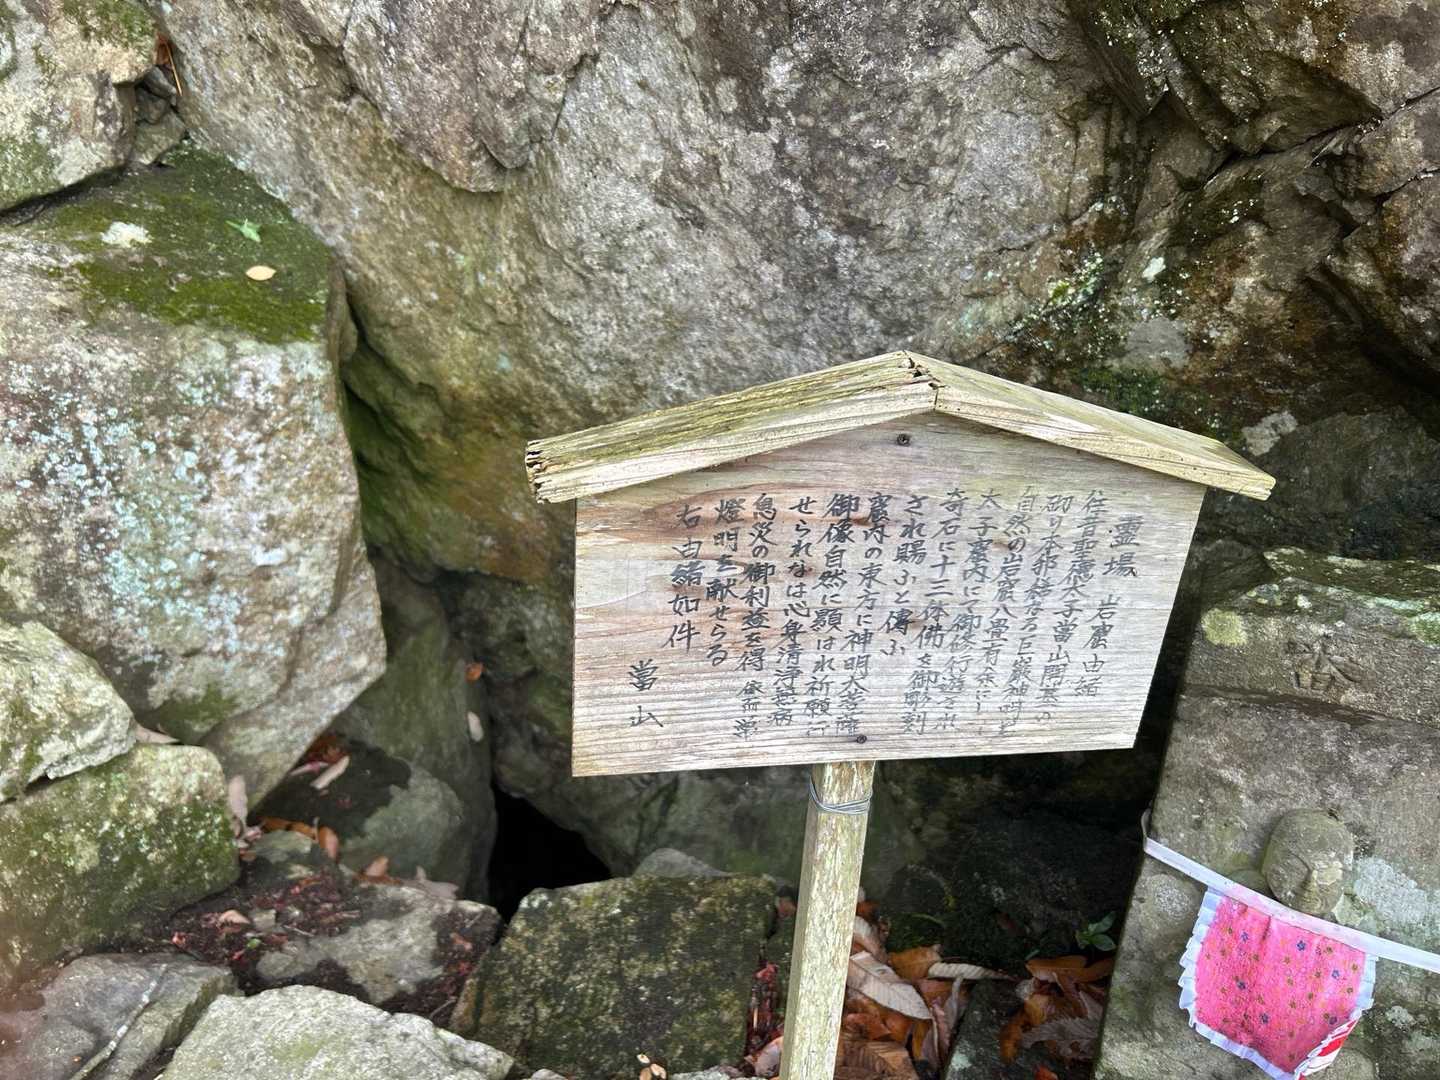 霊場 岩窟由緒
往昔聖徳太子當山開基の
砌り本邦稀なる巨巌神明
自然の岩窟八畳有余にし
太子窟内にて御修行遊され
奇石に十三体佛を御彫刻
され賜ふと傳ふ
窟内の東方に神明大菩薩
御像自然に顕は水祈願
せられなは心身清浄無病
息災の御利益を得
燈明を献せらる
右由緒如件
當山